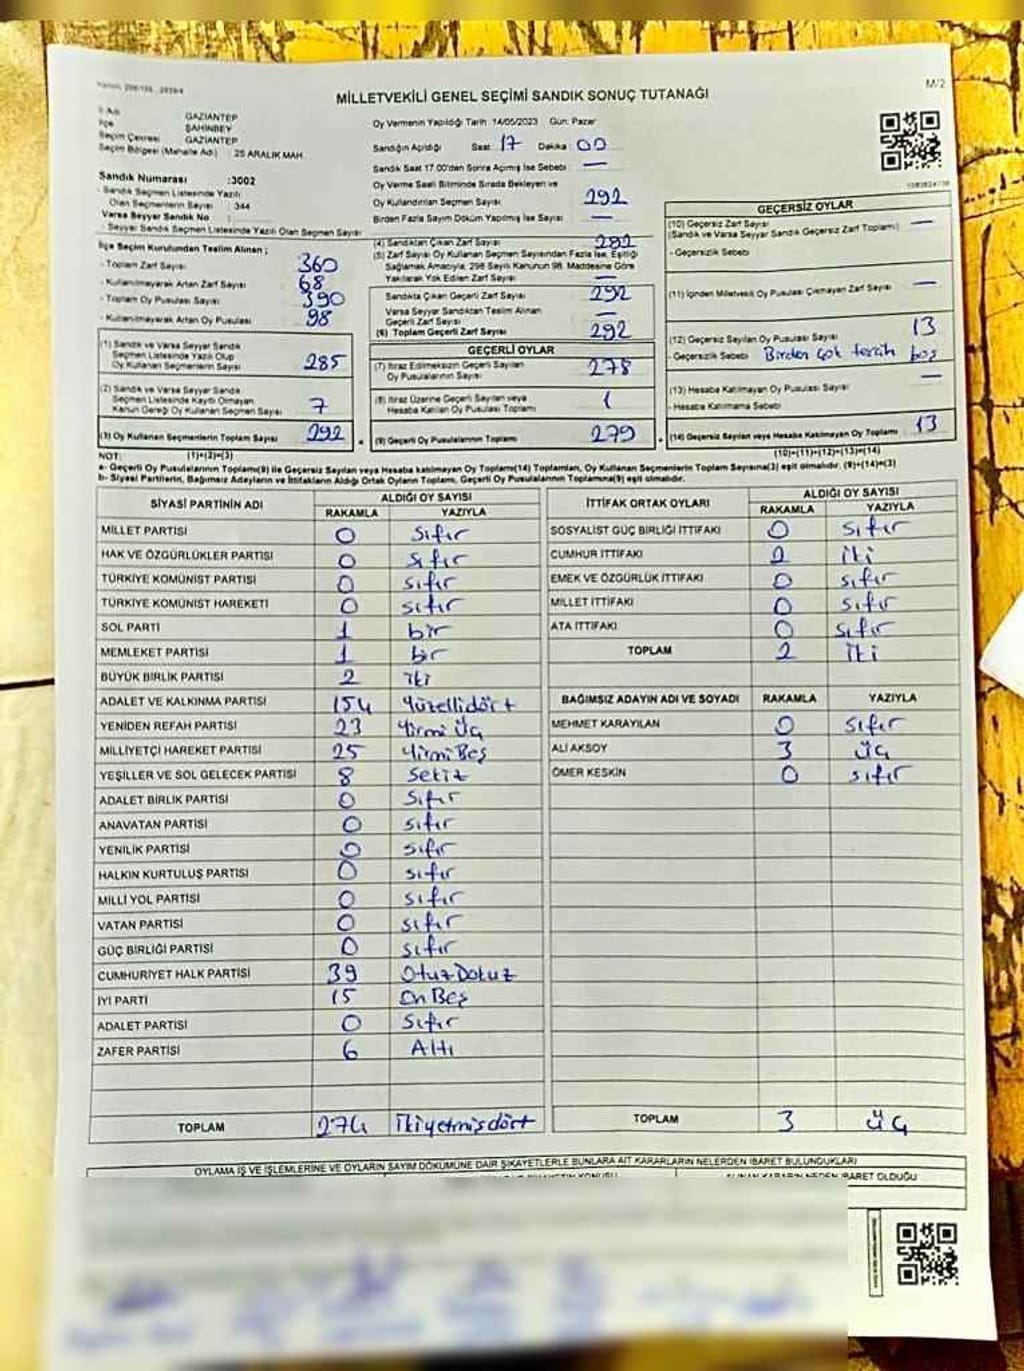 M/2
MİLLETVEKİLİ GENEL SEÇİMİ SANDIK SONUÇ TUTANAĞI
İl Adı GAZİANTEP
İlçe ŞAHİNBEY
Seçim Çevresi GAZİANTEP
Seçim Bölgesi (Mahalle Adı) : 25 ARALIK MAH.
Sandık Numarası :3002
- Sandık Seçmen Listesinde Yazılı
Olan Seçmenlerin Sayısı : 344
Varsa Seyyar Sandık No :
- Seyyar Sandık Seçmen Listesinde Yazılı Olan Seçmen Sayısı
Oy Vermenin Yapıldığı Tarih: 14/05/2023 Gün: Pazar
Sandığın Açıldığı Saat: 17 Dakika: 00
Sandık Saat 17.00'den Sonra Açılmış İse Sebebi —
Oy Verme Saati Bitiminde Sırada Bekleyen ve
Oy Kullandırılan Seçmen Sayısı 292
Birden Fazla Sayım Döküm Yapılmış İse Sayısı —
İlçe Seçim Kurulundan Teslim Alınan ;
- Toplam Zarf Sayısı 360
- Kullanılmayarak Artan Zarf Sayısı 68
- Toplam Oy Pusulası Sayısı 390
- Kullanılmayarak Artan Oy Pusulası 98
(1) Sandık ve Varsa Seyyar Sandık
Seçmen Listesinde Yazılı Olup
Oy Kullanan Seçmenlerin Sayısı 285
(2) Sandık ve Varsa Seyyar Sandık
Seçmen Listesinde Kayıtlı Olmayan
Kanun Gereği Oy Kullanan Seçmen Sayısı 7
(3) Oy Kullanan Seçmenlerin Toplam Sayısı 292
(1)+(2)=(3)
(4) Sandıktan Çıkan Zarf Sayısı 292
(5) Zarf Sayısı Oy Kullanan Seçmen Sayısından Fazla İse, Eşitliği
Sağlamak Amacıyla, 298 Sayılı Kanunun 98. Maddesine Göre
Yakılarak Yok Edilen Zarf Sayısı —
Sandıkta Çıkan Geçerli Zarf Sayısı 292
Varsa Seyyar Sandıktan Teslim Alınan
Geçerli Zarf Sayısı —
(6) Toplam Geçerli Zarf Sayısı 292
GEÇERLİ OYLAR
(7) İtiraz Edilmeksizin Geçerli Sayılan
Oy Pusulalarının Sayısı 278
(8) İtiraz Üzerine Geçerli Sayılan veya
Hesaba Katılan Oy Pusulası Toplamı 1
(9) Geçerli Oy Pusulalarının Toplamı 279
GEÇERSİZ OYLAR
(10) Geçersiz Zarf Sayısı —
(Sandık ve Varsa Seyyar Sandık Geçersiz Zarf Toplamı)
- Geçersizlik Sebebi
(11) İçinden Milletvekili Oy Pusulası Çıkmayan Zarf Sayısı —
(12) Geçersiz Sayılan Oy Pusulası Sayısı 13
- Geçersizlik Sebebi Birden çok tercih boş
(13) Hesaba Katılmayan Oy Pusulası Sayısı —
- Hesaba Katılmama Sebebi
(14) Geçersiz Sayılan veya Hesaba Katılmayan Oy Toplamı 13
(10)+(11)+(12)+(13)=(14)
NOT:
a- Geçerli Oy Pusulalarının Toplamı(9) ile Geçersiz Sayılan veya Hesaba katılmayan Oy Toplamı(14) Toplamları, Oy Kullanan Seçmenlerin Toplam Sayısına(3) eşit olmalıdır. (9)+(14)=(3)
b- Siyasi Partilerin, Bağımsız Adayların ve İttifakların Aldığı Ortak Oyların Toplamı, Geçerli Oy Pusulalarının Toplamına(9) eşit olmalıdır.
SİYASİ PARTİNİN ADI ALDIĞI OY SAYISI
RAKAMLA YAZIYLA
MİLLET PARTİSİ 0 Sıfır
HAK VE ÖZGÜRLÜKLER PARTİSİ 0 Sıfır
TÜRKİYE KOMÜNİST PARTİSİ 0 sıfır
TÜRKİYE KOMÜNİST HAREKETİ 0 sıfır
SOL PARTİ 1 bir
MEMLEKET PARTİSİ 1 bir
BÜYÜK BİRLİK PARTİSİ 2 iki
ADALET VE KALKINMA PARTİSİ 154 Yüzellidört
YENİDEN REFAH PARTİSİ 23 Yirmi Üç
MİLLİYETÇİ HAREKET PARTİSİ 25 Yirmi Beş
YEŞİLLER VE SOL GELECEK PARTİSİ 8 Sekiz
ADALET BİRLİK PARTİSİ 0 Sıfır
ANAVATAN PARTİSİ 0 sıfır
YENİLİK PARTİSİ 0 sıfır
HALKIN KURTULUŞ PARTİSİ 0 sıfır
MİLLİ YOL PARTİSİ 0 sıfır
VATAN PARTİSİ 0 sıfır
GÜÇ BİRLİĞİ PARTİSİ 0 sıfır
CUMHURİYET HALK PARTİSİ 39 Otuz Dokuz
İYİ PARTİ 15 On Beş
ADALET PARTİSİ 0 Sıfır
ZAFER PARTİSİ 6 Altı
TOPLAM 274 İkiyetmişdört
İTTİFAK ORTAK OYLARI ALDIĞI OY SAYISI
RAKAMLA YAZIYLA
SOSYALİST GÜÇ BİRLİĞİ İTTİFAKI 0 Sıfır
CUMHUR İTTİFAKI 2 iki
EMEK VE ÖZGÜRLÜK İTTİFAKI 0 sıfır
MİLLET İTTİFAKI 0 sıfır
ATA İTTİFAKI 0 sıfır
TOPLAM 2 iki
BAĞIMSIZ ADAYIN ADI VE SOYADI RAKAMLA YAZIYLA
MEHMET KARAYILAN 0 Sıfır
ALİ AKSOY 3 üç
ÖMER KESKİN 0 sıfır
TOPLAM 3 üç
OYLAMA İŞ VE İŞLEMLERİNE VE OYLARIN SAYIM DÖKÜMÜNE DAİR ŞİKAYETLERLE BUNLARA AİT KARARLARIN NELERDEN İBARET BULUNDUKLARI